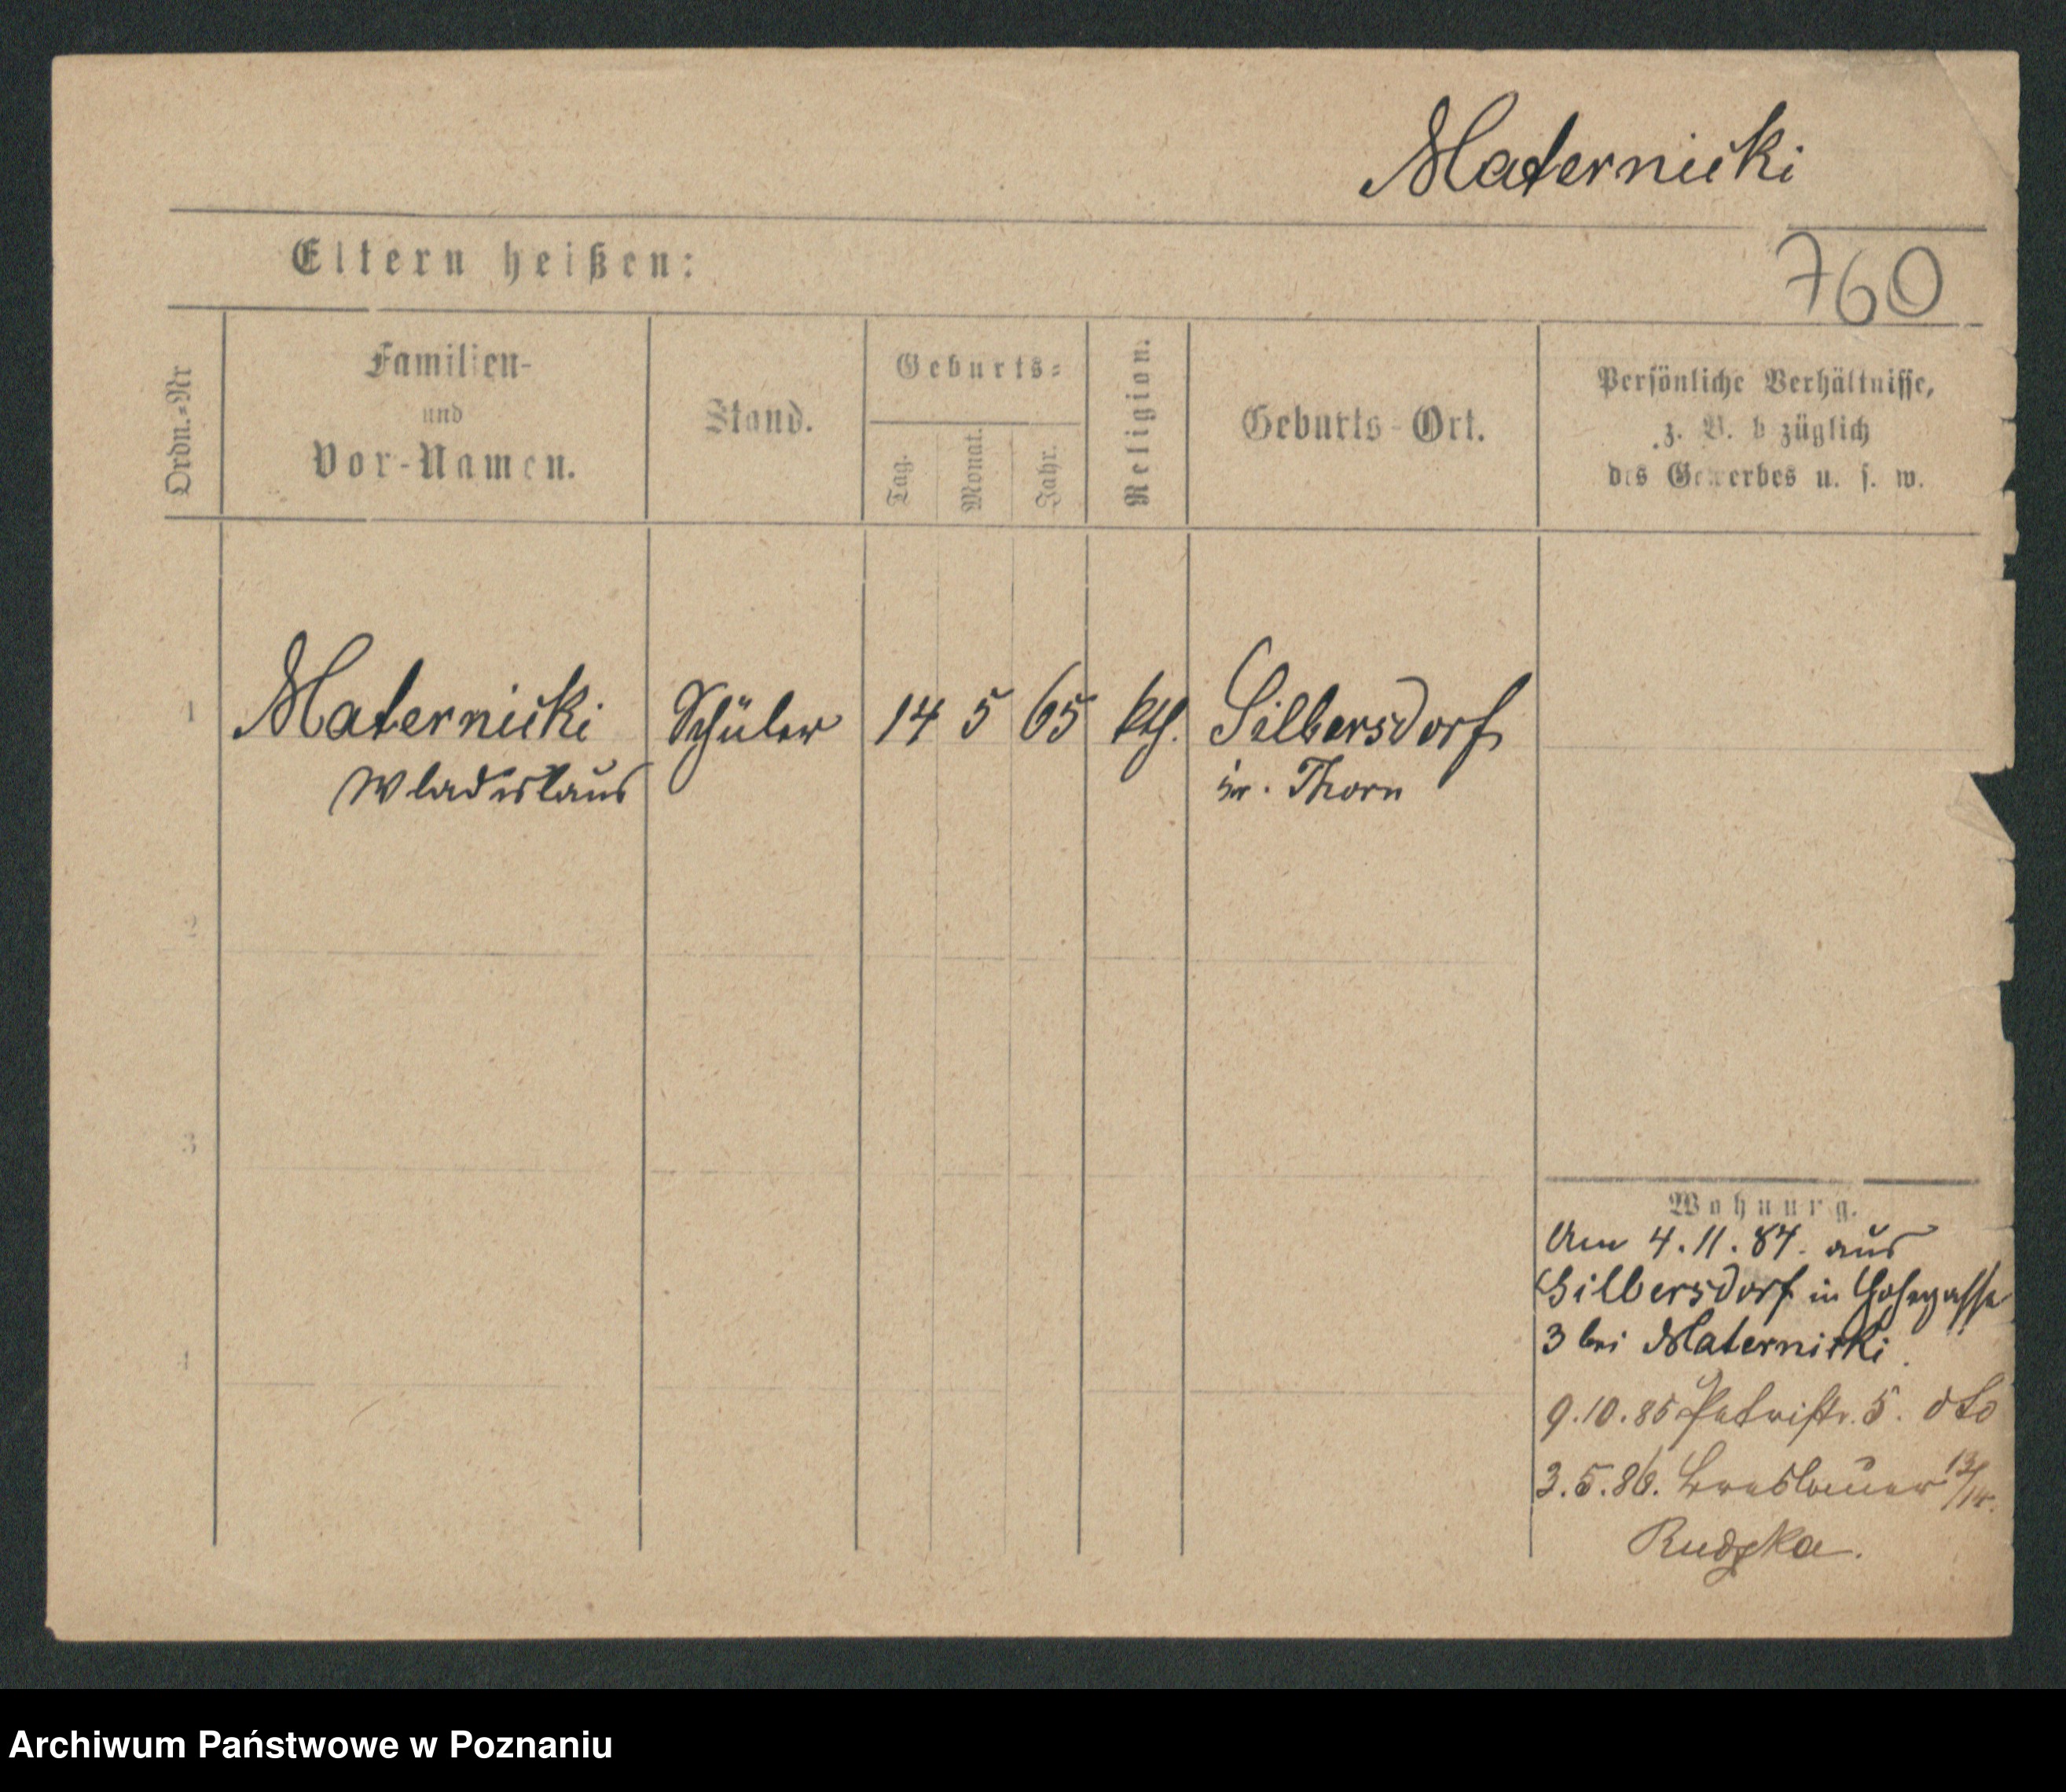 Maternicki
Eltern heißen:
760
Ordn.-Nr
Familien-
und
Vor-Namen.
Stand.
Geburts-
Tag.
Monat.
Jahr.
Religion.
Geburts-Ort.
Persönliche Verhältnisse,
z. B. b züglich
des Gewerbes u. s. w.
1 Maternicki Schüler 14 5 65 kth. Silbersdorf
Wladislaus Kr. Thorn
2
3
4
Wohnung.
Am 4.11.84. aus
Silbersdorf in
3 bei Maternicki
9.10.85 Petristr. 5. dto
3.5.86. Breslauer 13/14.
Rudzka.
Archiwum Państwowe w Poznaniu